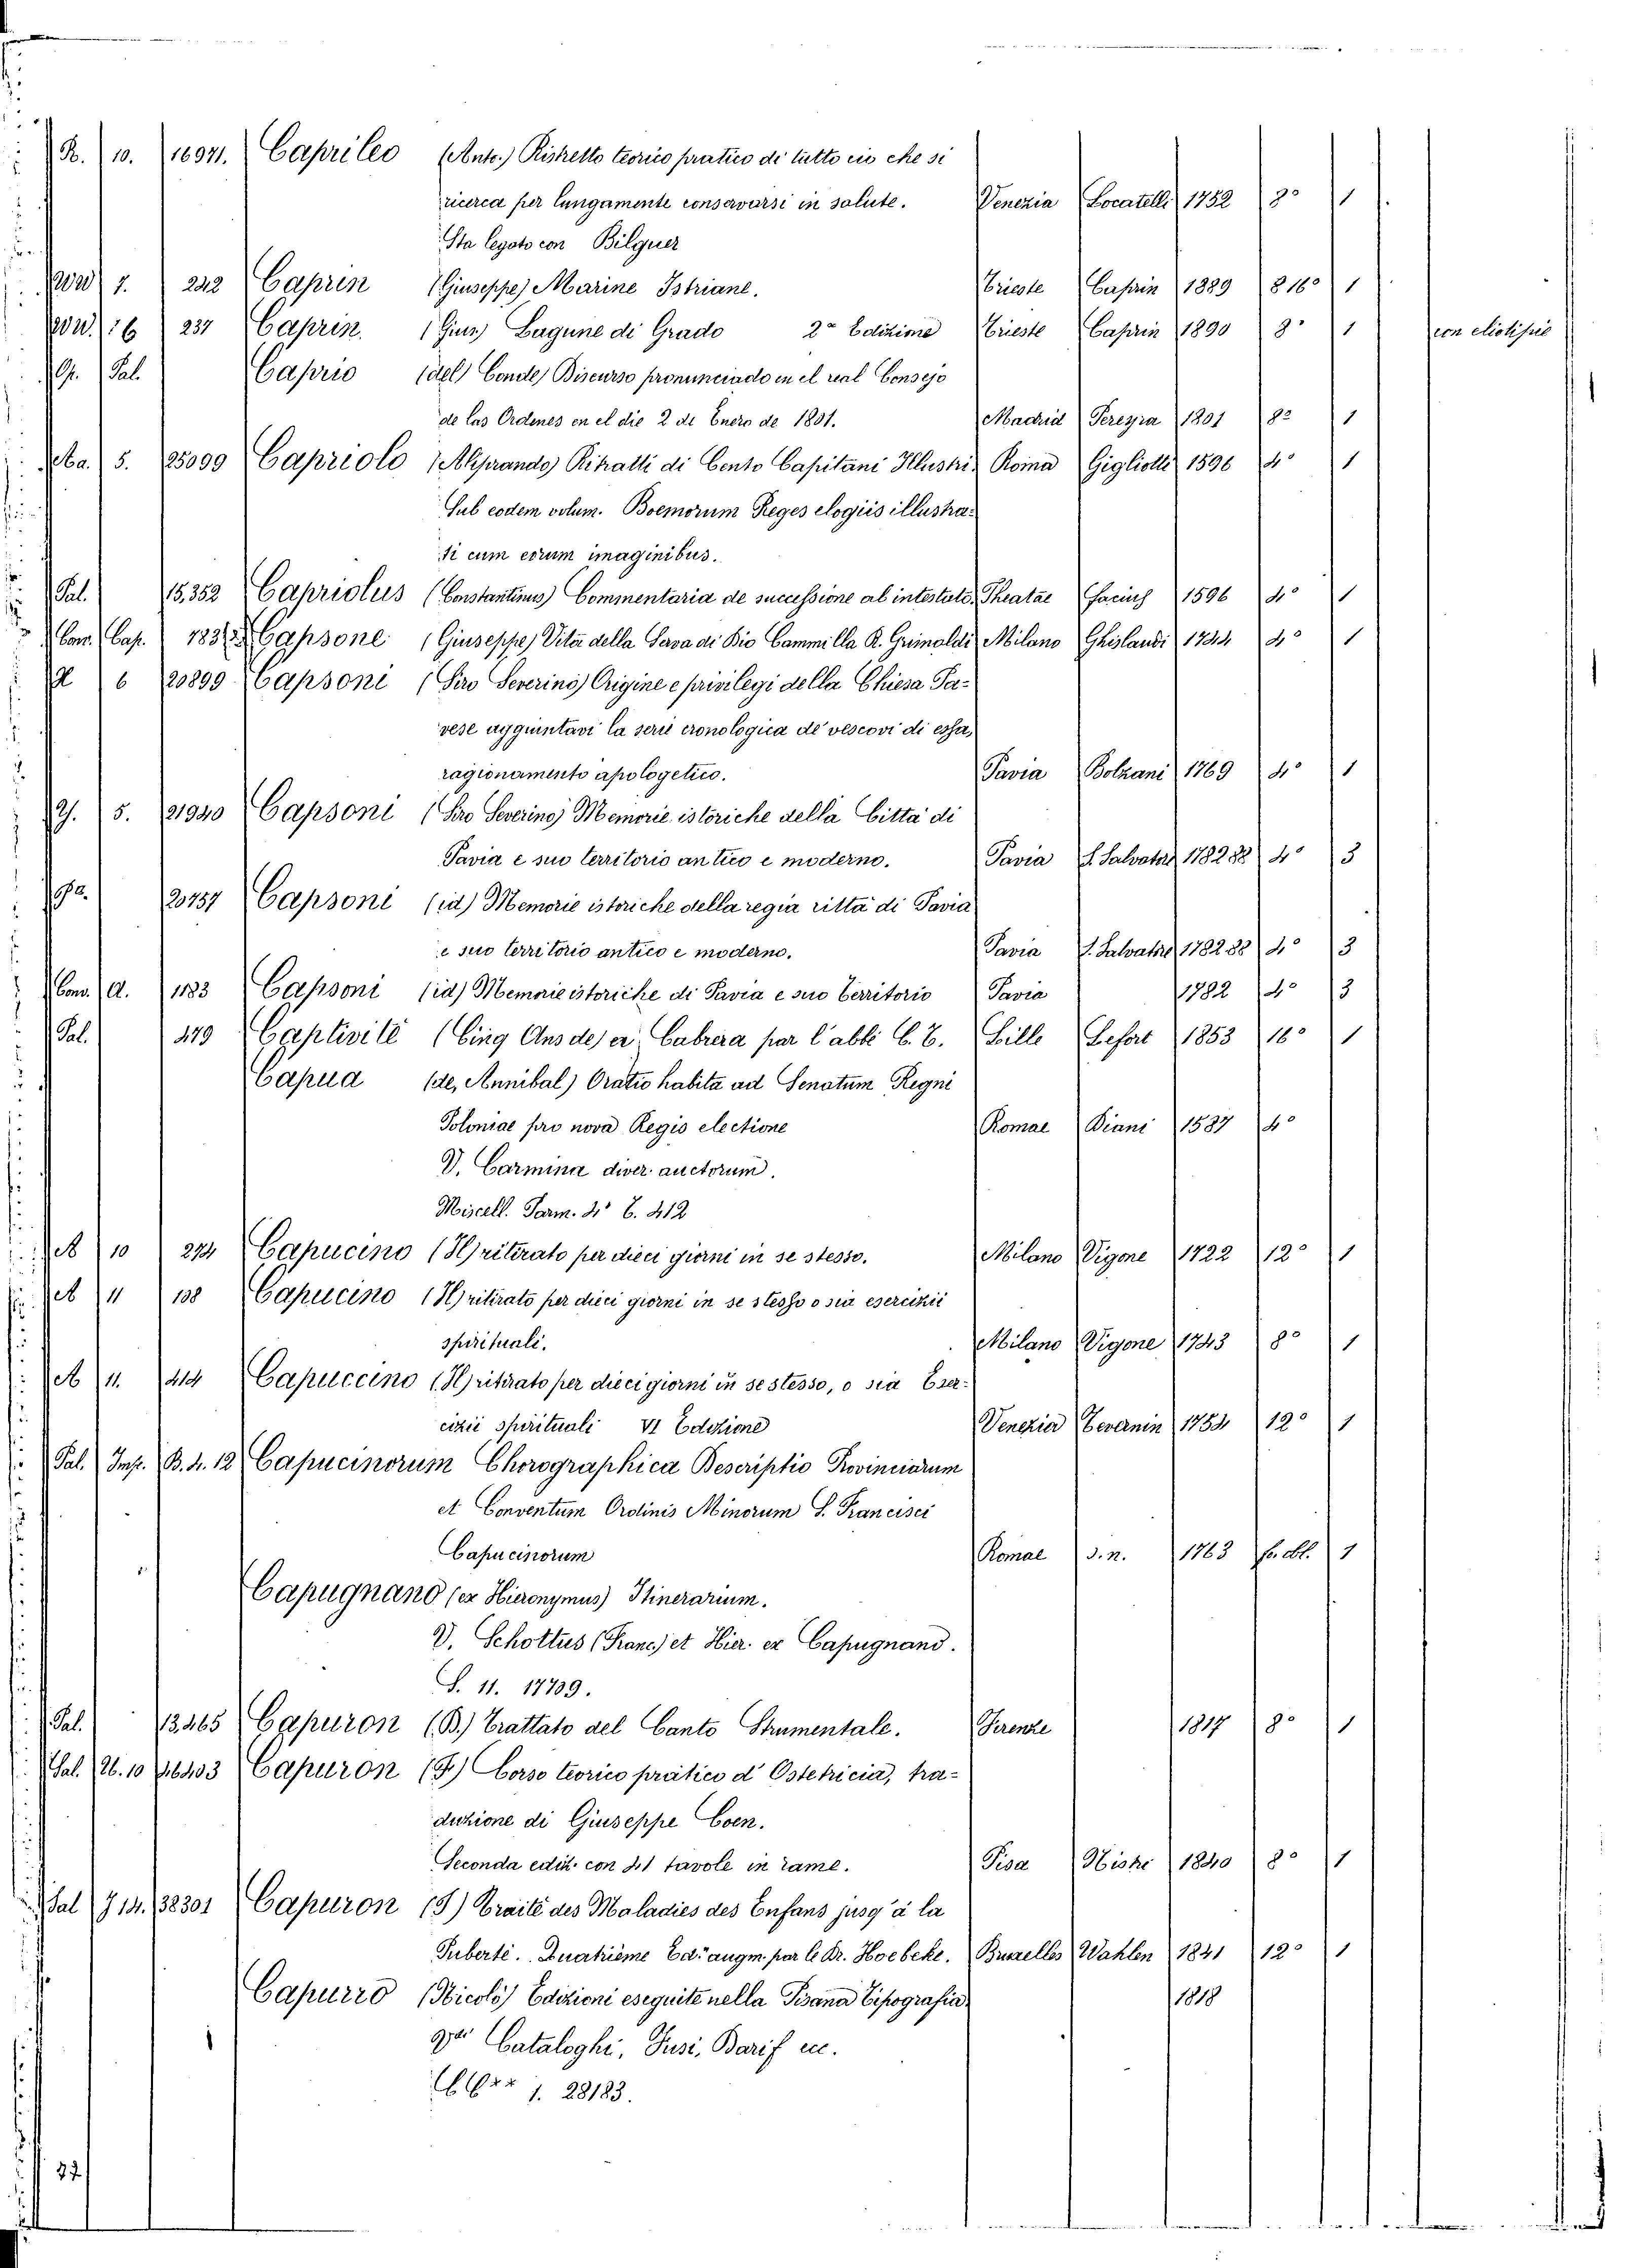 R. 10. 16971. Caprileo (Anto.) Ristretto teorico pratico di tutto cio che si
ricerca per lungamente conservarsi in salute. Venezia Locatelli 1752 8º 1
Sta legato con Bilguer
7. 242 Caprin (Giuseppe) Marine Istriane. Trieste Caprin 1889 8 16º 1
16 237 Caprin. (Gius) Lagune di Grado 2ª Edizione Trieste Caprin 1890 8º 1 con eliotipie
Pal. Caprio (del) Conde) Discurso pronunciado en el real Consejo
de las Ordenes en el die 2 de Enero de 1801. Madrid Pereyra 1801 8º 1
5. 25099 Capriolo (Aliprando) Ritratti di Cento Capitani Illustri. Roma Gigliotti 1596 4º 1
Sub eodem volum. Boemorum Reges elogiis illustra-
ti cum eorum imaginibus.
Pal. 15,352 Capriolus (Constantinus) Commentaria de successione ab intestato. Theatae Facius 1596 4º 1
Cam. Cap. Capsone (Giuseppe) Vita della Serva di Dio Cammilla R. Grimoldi Milano Ghislandi 1744 4º 1
6 20899 Capsoni (Siro Severino) Origine e privilegi della Chiesa Pa-
vese aggiuntavi la serie cronologica de' vescovi di essa,
ragionamento apologetico. Pavia Bolzani 1769 4º 1
5. 21940 Capsoni (Siro Severino) Memorie istoriche della Città di
Pavia e suo territorio antico e moderno. Pavia S. Salvatore 178288 4º 3
20757 Capsoni (id) Memorie istoriche della regia città di Pavia
e suo territorio antico e moderno. Pavia S. Salvatre 178288 4º 3
Conv. A. 1183 Capsoni (id) Memorie istoriche di Pavia e suo Territorio Pavia 1782 4º 3
Pal. 479 Captivité (Cinq Ans de) a Cabrera par l'abbé C. T. Lille Lefort 1853 16º 1
Capua (de, Annibal) Oratio habita ad Senatum Regni
Poloniae pro nova Regis electione Romae Diani 1587 4º
V. Carmina diver. auctorum.
Miscell. Parm. 4º C. 412
10 274 Capucino (Il) ritirato per dieci giorni in se stesso. Milano Vigone 1722 12º 1
11 138 Capucino (Il) ritirato per dieci giorni in se stesso o sia esercizii
spirituali. Milano Vigone 1743 8º 1
11. 414 Capuccino (Il) ritirato per dieci giorni in se stesso, o sia Eser-
cizii spirituali VI Edizione Venezia Tevernin 1754 12º 1
Pal. Imp. B. 4. 12 Capucinorum Chorographica Descriptio Provinciarum
et Conventum Ordinis Minorum S. Francisci
Capucinorum Romae s.n. 1763 1
Capugnano (ex Hieronymus) Itinerarium.
V. Schottus (Franc.) et Hier. ex Capugnano.
S. 11. 17709.
Pal. 13,465 Capuron (B.) Trattato del Canto Strumentale. Firenze 1817 8º 1
Pal. 26. 10 16403 Capuron (F.) Corso teorico pratico d' Ostetricia, tra-
duzione di Giuseppe Coen.
Seconda ediz. con 41 tavole in rame. Pisa Nistri 1840 8º 1
Pal J 14. 38301 Capuron (J.) Traité des Maladies des Enfans jusq'à la
Puberté. Quatrième Ed. augm. par le Dr. Hoebeke. Bruxelles Wahlen 1841 12º 1
Capurro (Nicolò) Edizioni eseguite nella Pisana Tipografia 1818
Cataloghi, Fusi, Barif ec.
1. 28183.